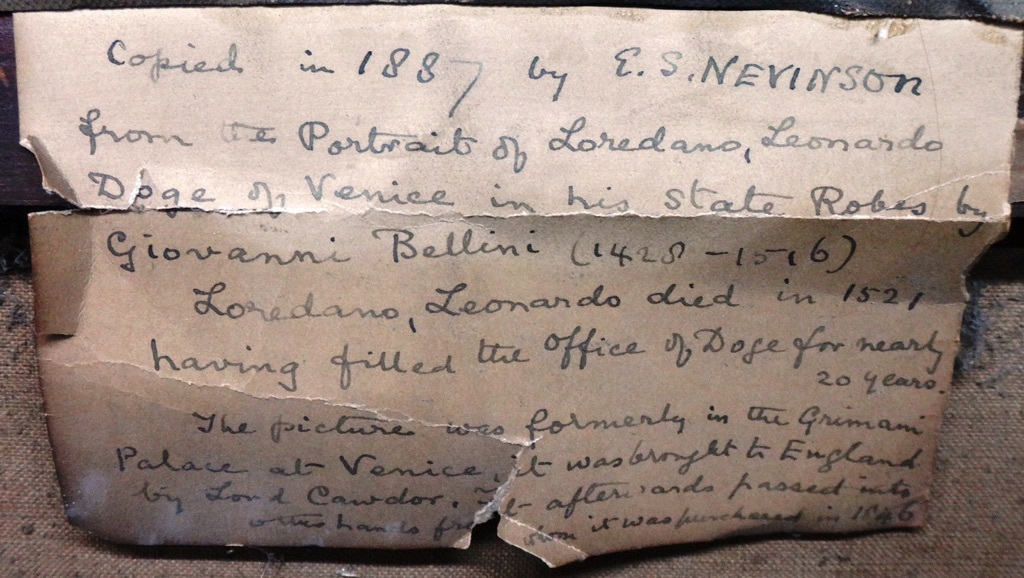 Copied in 1887 by E.S. NEVINSON
from the Portrait of Loredano, Leonardo
Doge of Venice in his State Robes by
Giovanni Bellini (1428-1516)
Loredano, Leonardo died in 1521
having filled the office of Doge for nearly
20 years.
The picture was formerly in the Grimani
Palace at Venice, it was brought to England
by Lord Cawdor. It afterwards passed into
other hands from whom it was purchased in 1846